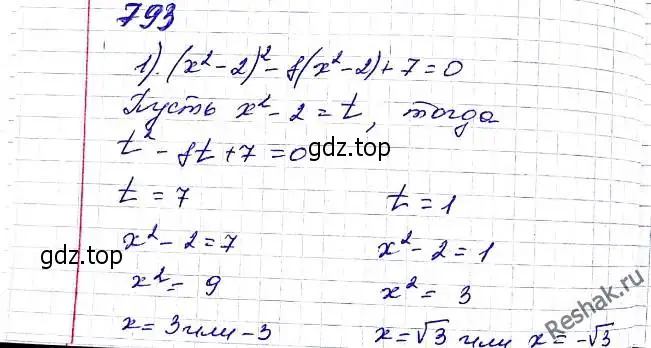 793
1). (x² - 2)² - 8(x² - 2) + 7 = 0
Пусть x² - 2 = t, тогда
t² - 8t + 7 = 0
gdz.top
t = 7 t = 1
x² - 2 = 7 x² - 2 = 1
gdz.top
x² = 9 x² = 3
x = 3 или -3 x = √3 или x = -√3
Reshak.ru